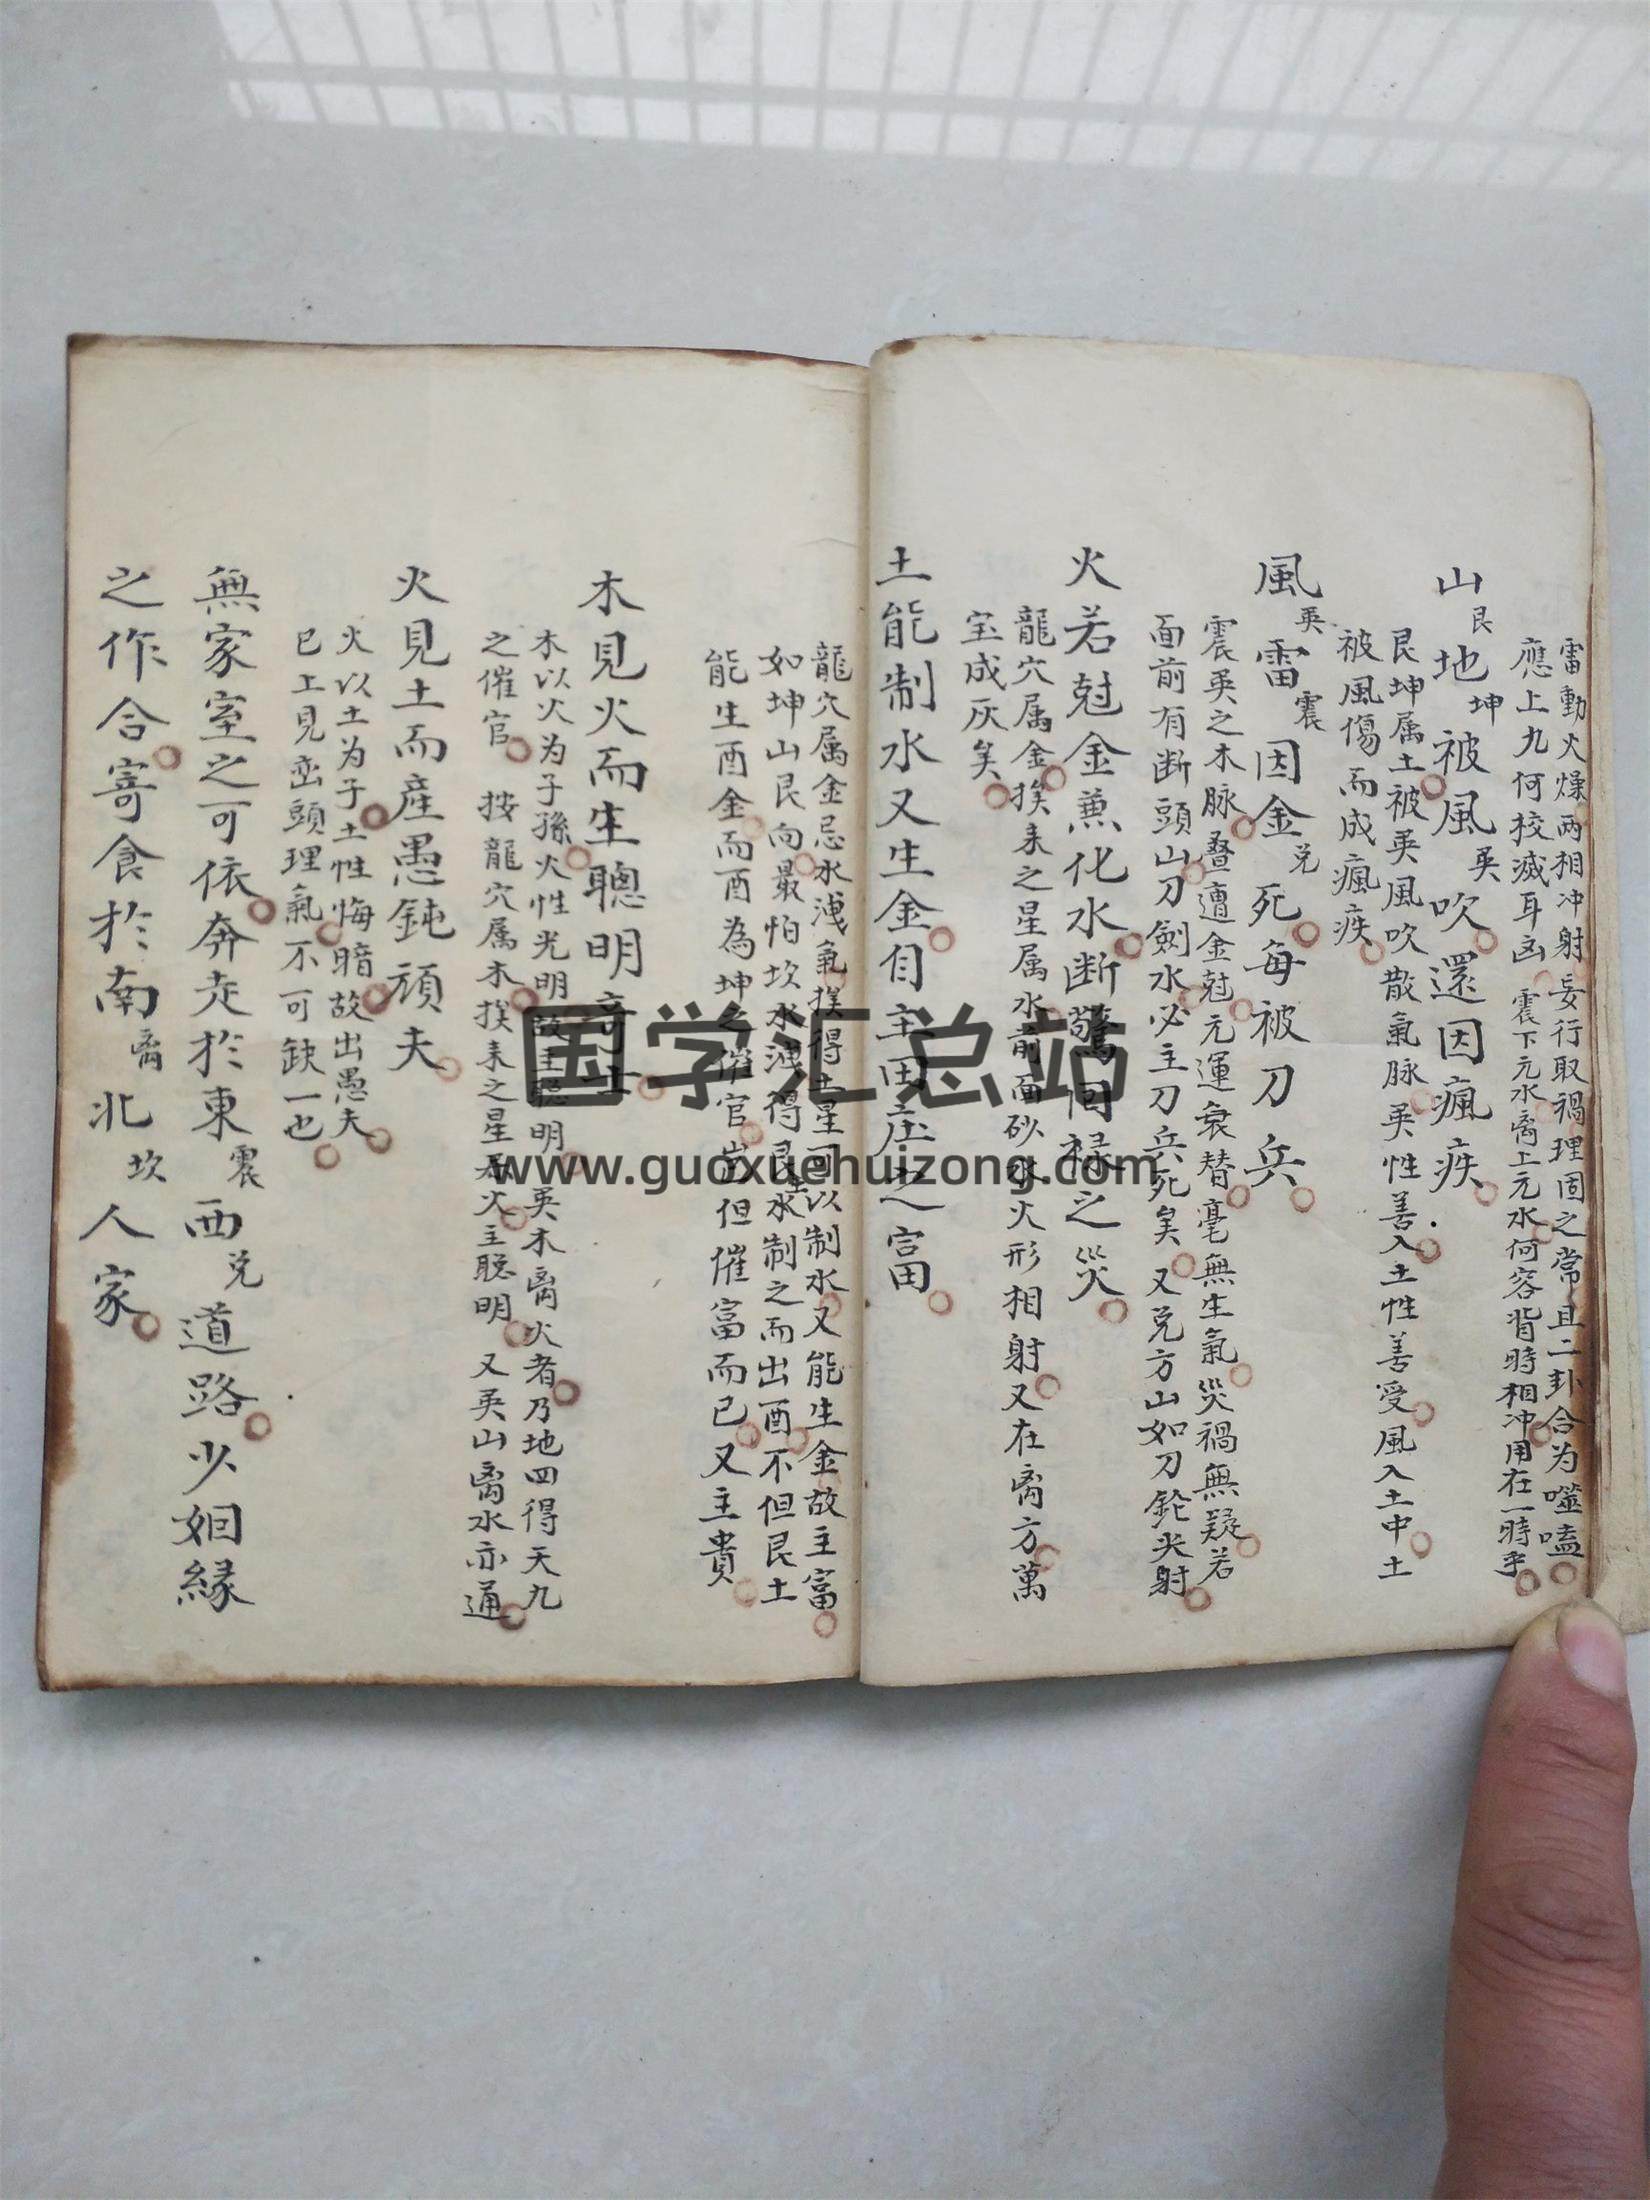 雷動火燥两相冲射妄行取禍理固之常且二卦合为噬嗑
應上九何校滅耳凶 震下元水离上元水何容背時相冲用在一時乎
山艮地坤被風巽吹還因瘋疾
艮坤属土被巽風吹散氣脉巽性善入土性善受風入土中土
被風傷而成瘋疾
風巽雷震因金兑死每被刀兵
震巽之木脉叠遭金尅元運衰替毫無生氣災禍無疑若
面前有断頭山刀劍水必主刀兵死矣 又兑方山如刀鎗尖射
火若尅金兼化水断驚回禄之災
龍穴属金挨来之星属水前面砂水火形相射又在离方萬
宝成灰矣
土能制水又生金自主田庄之富
龍穴属金忌水洩氣挨得土星可以制水又能生金故主富
如坤山艮向最怕坎水洩得艮土水制之而出酉不但艮土
能生酉金而酉為坤之催官出但催富而已又主貴
木見火而生聰明奇士
木以火为子孫火性光明故主聪明 巽木离火者乃地四得天九
之催官 按龍穴属木挨来之星属火主聪明 又巽山离水亦通
火見土而產愚鈍頑夫
火以土为子土性悔暗故出愚夫
已上見峦頭理氣不可缺一也
無家室之可依奔走於東震西兑道路少姻緣
之作合寄食於南离北坎人家
国学汇总站
www.guoxuehuizong.com